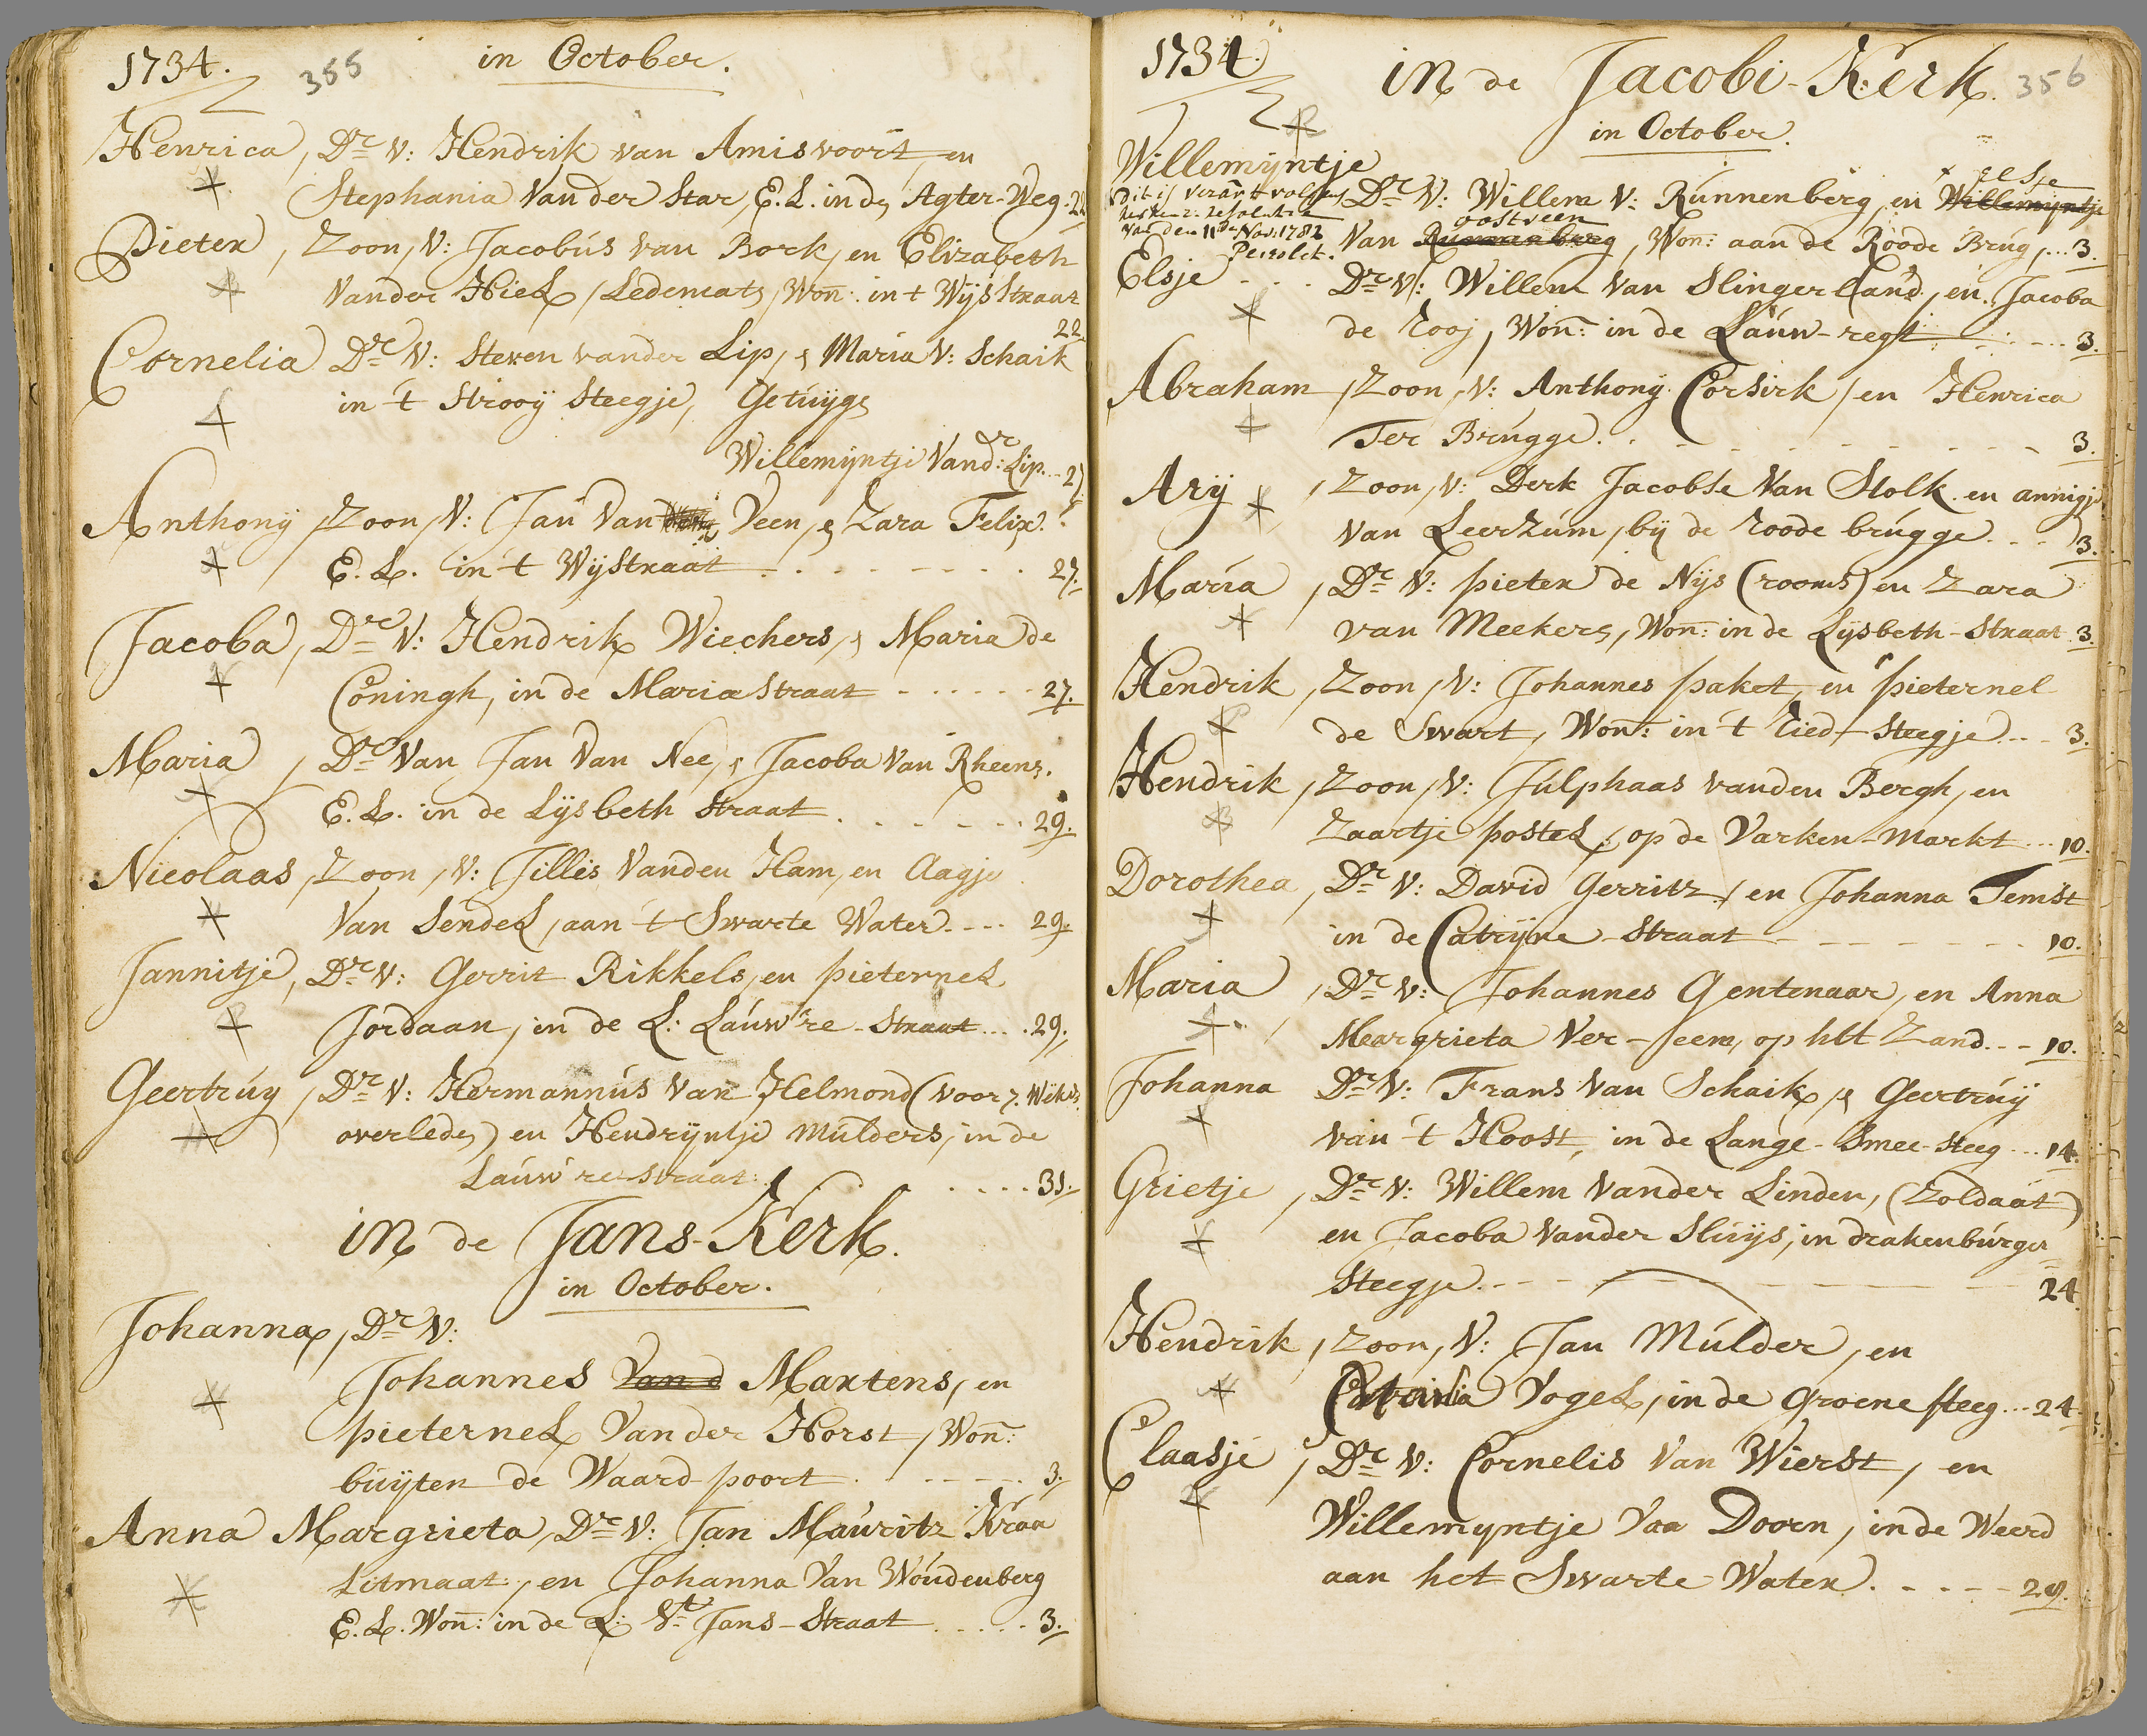 1734. 355 in October.
Henrica, Dr. V: Hendrik van Amisvoort, en
Stephania Van der Star, E. L. in de Agter-Weg. 22
Pieter, Zoon, V: Jacobus van Bork, en Elizabeth
Vander Hiel, Ledemats, Won: in t Wijstraat
22
Cornelia Dr. V: Steven vander Lip, & Maria V: Schaik
in 't Strooij Steegje, Getuijge
Willemijntje Vand:r Lip... 27.
Anthony, Zoon, V: Jan Van Veen, & Zara Felix.
E. L. in 't Wijstraat . . . . . . . . 27.
Jacoba, Dr. V: Hendrik Wiechers, & Maria de
Coningh, in de Mariastraat - . . . . . 27.
Maria, Dr. Van Jan Van Nee, & Jacoba Van Rheenz.
E. L. in de Lijsbeth Straat . . . . . . 29.
Nicolaas, Zoon, V: Jillis Vanden Ham, en Aagje
Van Sendel, aan 't Swarte Water. . . . 29.
Jannitje, Dr. V: Gerrit Rikkels, en pieternel
Jordaan, in de L: Lauw're-Straat . . . 29.
Geertruy, Dr. V: Hermannus Van Helmond (voor 7. Weke
overleden) en Hendrijntje Mulders, in de
Lauw're straat . . . . . . 31.
in de Jans-Kerk.
in October.
Johanna, Dr. V:
Johannes Van d Martens, en
pieternel Van der Horst, Won:
buijten de Waard-poort . . . . . . 3.
Anna Margrieta, Dr. V: Jan Mauritz Kraa
Litmaat, en Johanna Van Woudenberg
E. L. Won: in de L: St. Jans-Straat . . . . . 3.
1734. in de Jacobi-Kerk. 356
in October.
Willemijntje
elsje
Dit is verand.t volgens Dr. V: Willem V: Runnenberg, en Willemijntje
oostveen
van den 11de Nov: 1782 Van Runnenberg, Won: aan de Roode Brug, ... 3.
Elsje . . . Dr. V: Willem Van Slingerland, en Jacoba
de Rooj, Won: in de Lauw-regt . . . . 3.
Abraham, Zoon, V: Anthony Corsirk, en Henrica
Ter Brugge. . . . . . . . . . 3.
Arij, Zoon, V: Derk Jacobse Van Stolk en annigje
Van Leerzum, bij de roode brugge . . . 3.
Maria, Dr. V: pieter de Nijs (rooms) en Zara
van Meekers, Won: in de Lijsbeth-Straat. 3.
Hendrik, Zoon, V: Johannes paket, en pieternel
de Swart, Won: in 't Ried-Steegje . . . 3.
Hendrik, Zoon, V: Julphaas vanden Bergh, en
Zaartje postel, op de Varken-Markt ... 10.
Dorothea, Dr. V: David Gerritz, en Johanna Temst
in de Catrijne-Straat - - - - - . . . 10.
Maria, Dr. V: Johannes Gentenaar, en Anna
Margrieta Ver-seem, op het Zand. . - 10.
Johanna Dr. V: Frans Van Schaik, & Geertruij
van 't Hoost, in de Lange-Smee-Steeg ... 14.
Grietje, Dr. V: Willem Vander Linden, (Zoldaat)
en Jacoba Vander Sluijs, in drakenburger
Steegje. - - - - - - - - 24.
Hendrik, Zoon, V: Jan Mulder, en
Catrina Vogel, in de Groene steeg ... 24.
Claasje, Dr. V: Cornelis Van Wierst, en
Willemyntje Van Doorn, in de Weerd
aan het Swarte-Water. . . . - - 29.